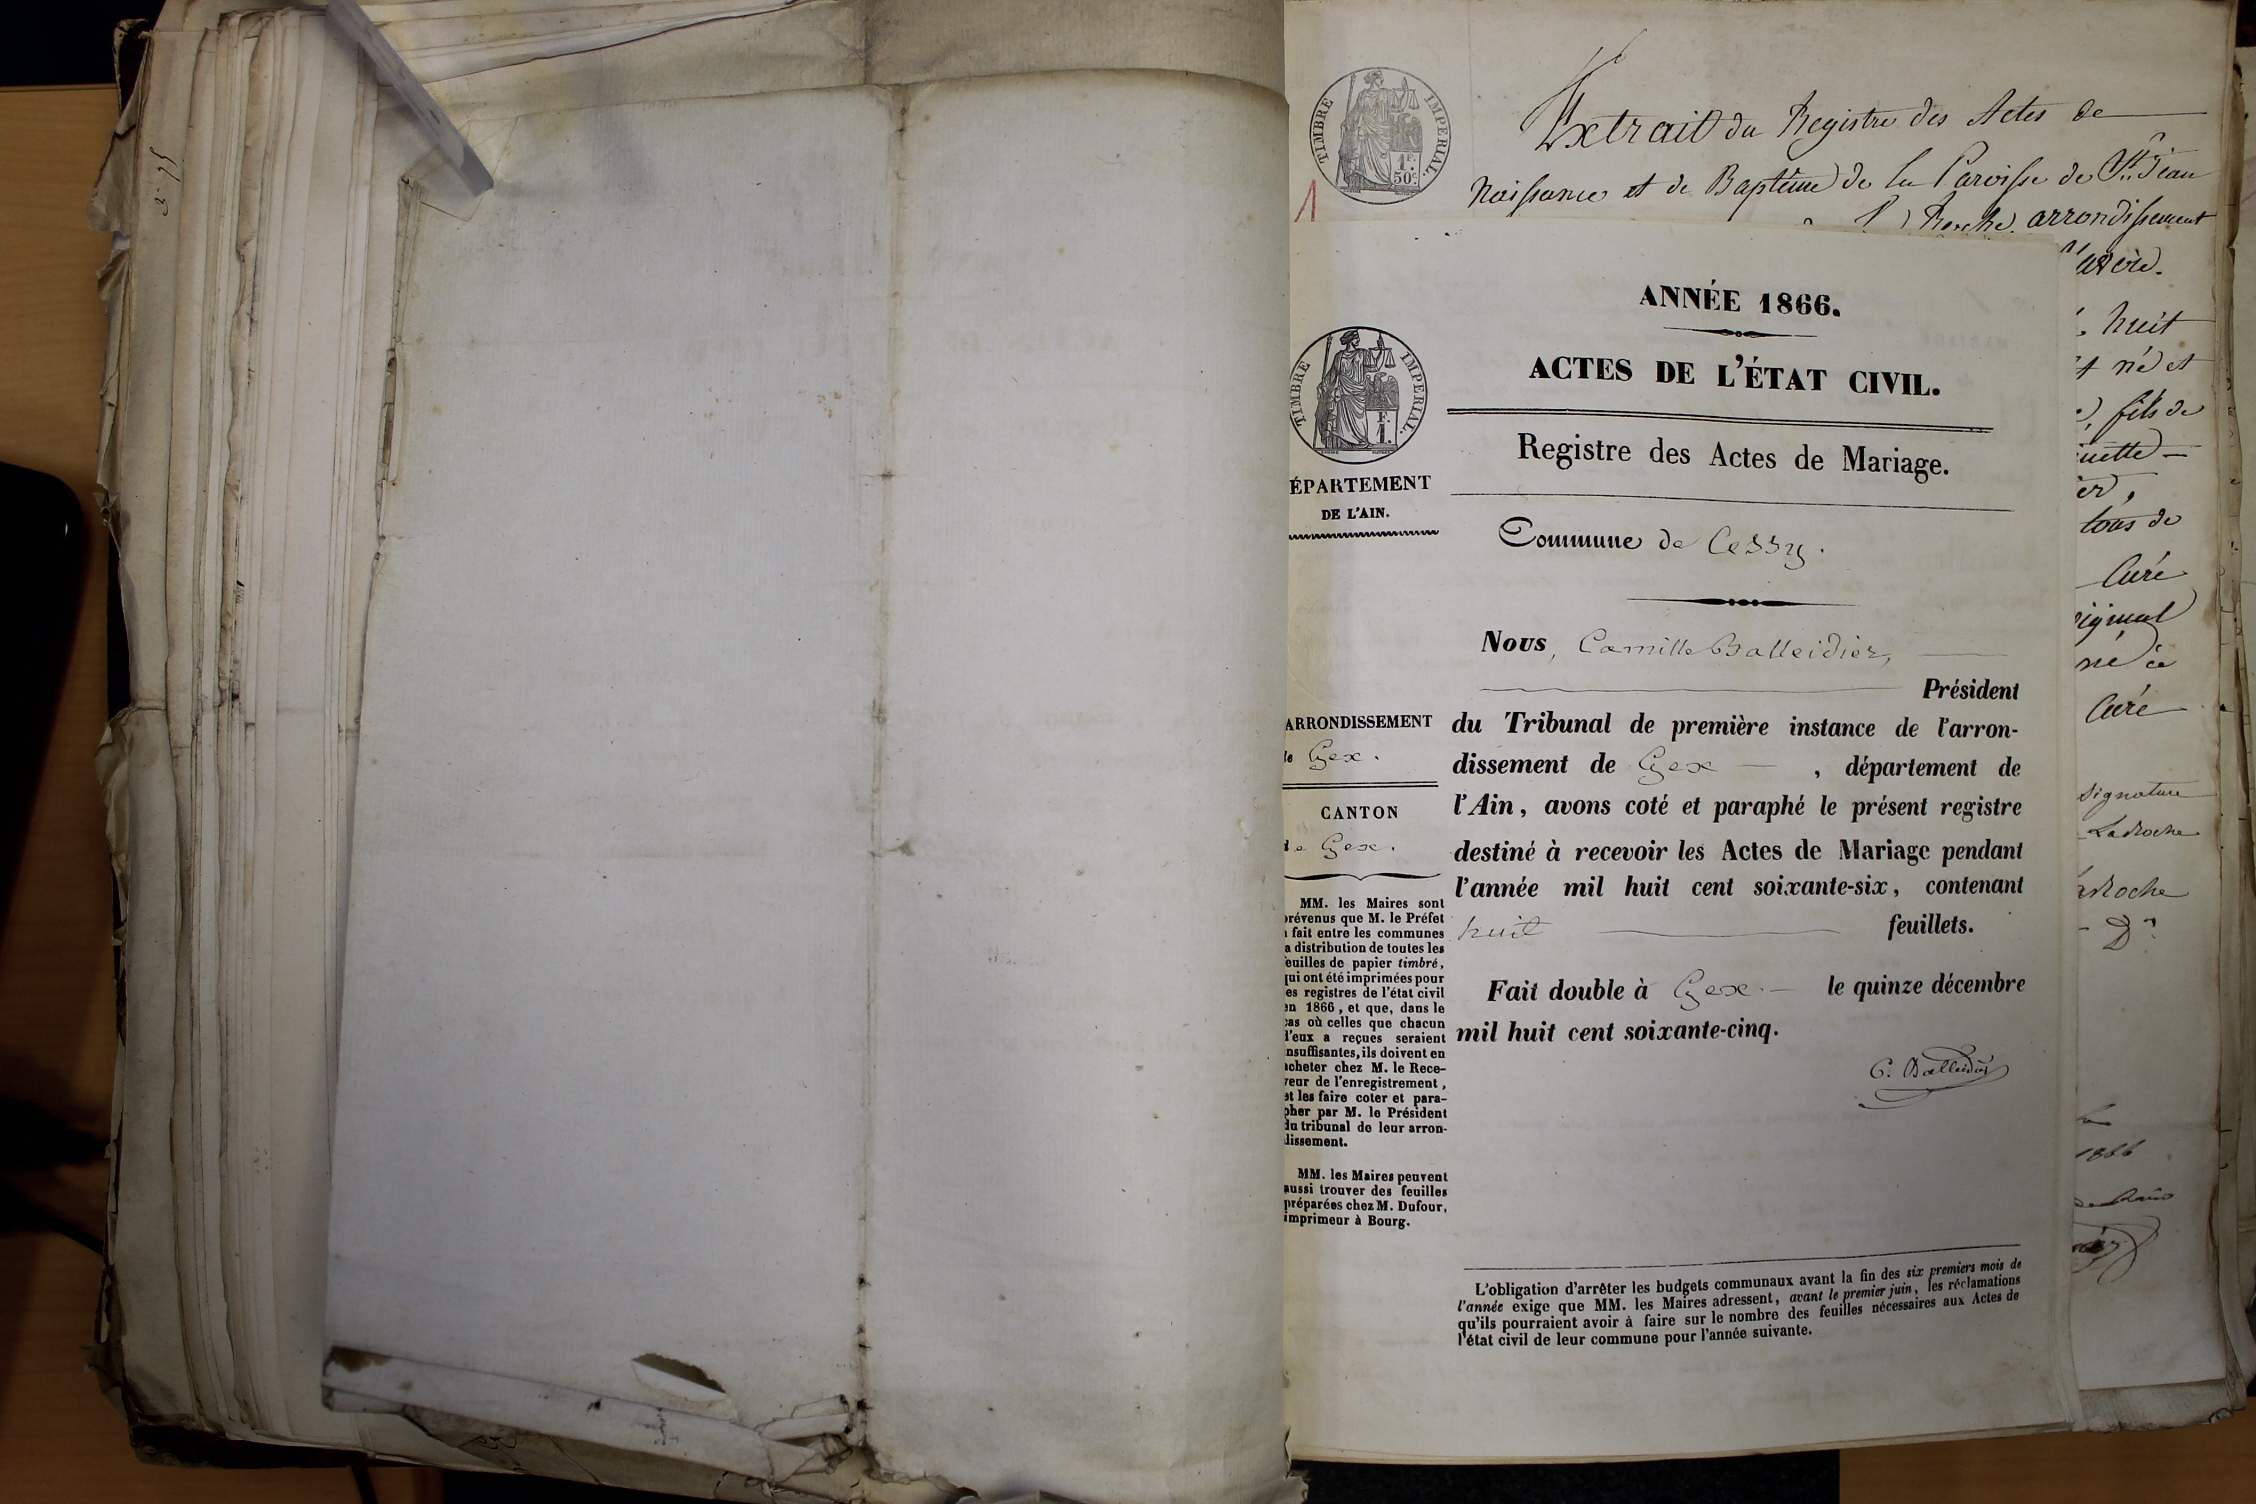 TIMBRE IMPERIAL.
1F.
50c.
1
Extrait du Registre des Actes de
Naissance et de Baptême de la Paroisse de St. Jean
Roche arrondissement
huit
né et
fils de
tous de
Curé
original
ce
Curé
signature
LaRoche
LaRoche
1866
ANNÉE 1866.
ACTES DE L'ÉTAT CIVIL.
Registre des Actes de Mariage.
Commune de Cessy.
TIMBRE IMPERIAL.
F.
1.
ÉPARTEMENT
DE L'AIN.
ARRONDISSEMENT
de Gex.
CANTON
de Gex.
MM. les Maires sont
prévenus que M. le Préfet
a fait entre les communes
la distribution de toutes les
feuilles de papier timbré,
qui ont été imprimées pour
les registres de l'état civil
en 1866, et que, dans le
cas où celles que chacun
d'eux a reçues seraient
insuffisantes, ils doivent en
acheter chez M. le Rece-
veur de l'enregistrement,
et les faire coter et para-
pher par M. le Président
du tribunal de leur arron-
dissement.
MM. les Maires peuvent
aussi trouver des feuilles
préparées chez M. Dufour,
imprimeur à Bourg.
Nous, Camille Balleidier,
Président
du Tribunal de première instance de l'arron-
dissement de Gex, département de
l'Ain, avons coté et paraphé le présent registre
destiné à recevoir les Actes de Mariage pendant
l'année mil huit cent soixante-six, contenant
huit feuillets.
Fait double à Gex. le quinze décembre
mil huit cent soixante-cinq.
C. Balleidier
L'obligation d'arrêter les budgets communaux avant la fin des six premiers mois de
l'année exige que MM. les Maires adressent, avant le premier juin, les réclamations
qu'ils pourraient avoir à faire sur le nombre des feuilles nécessaires aux Actes de
l'état civil de leur commune pour l'année suivante.